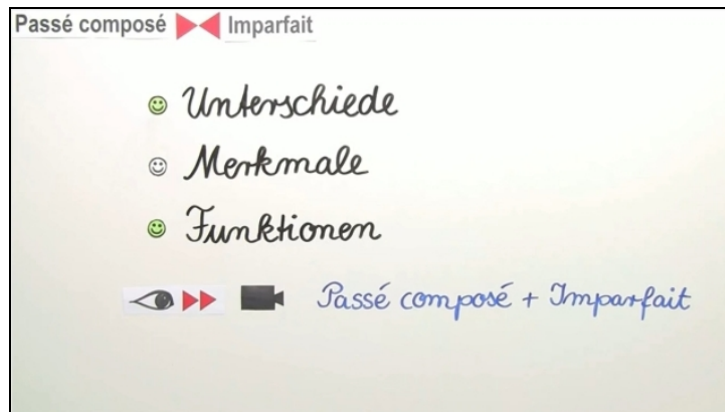 Passé composé Imparfait
Unterschiede
Merkmale
Funktionen
Passé composé + Imparfait